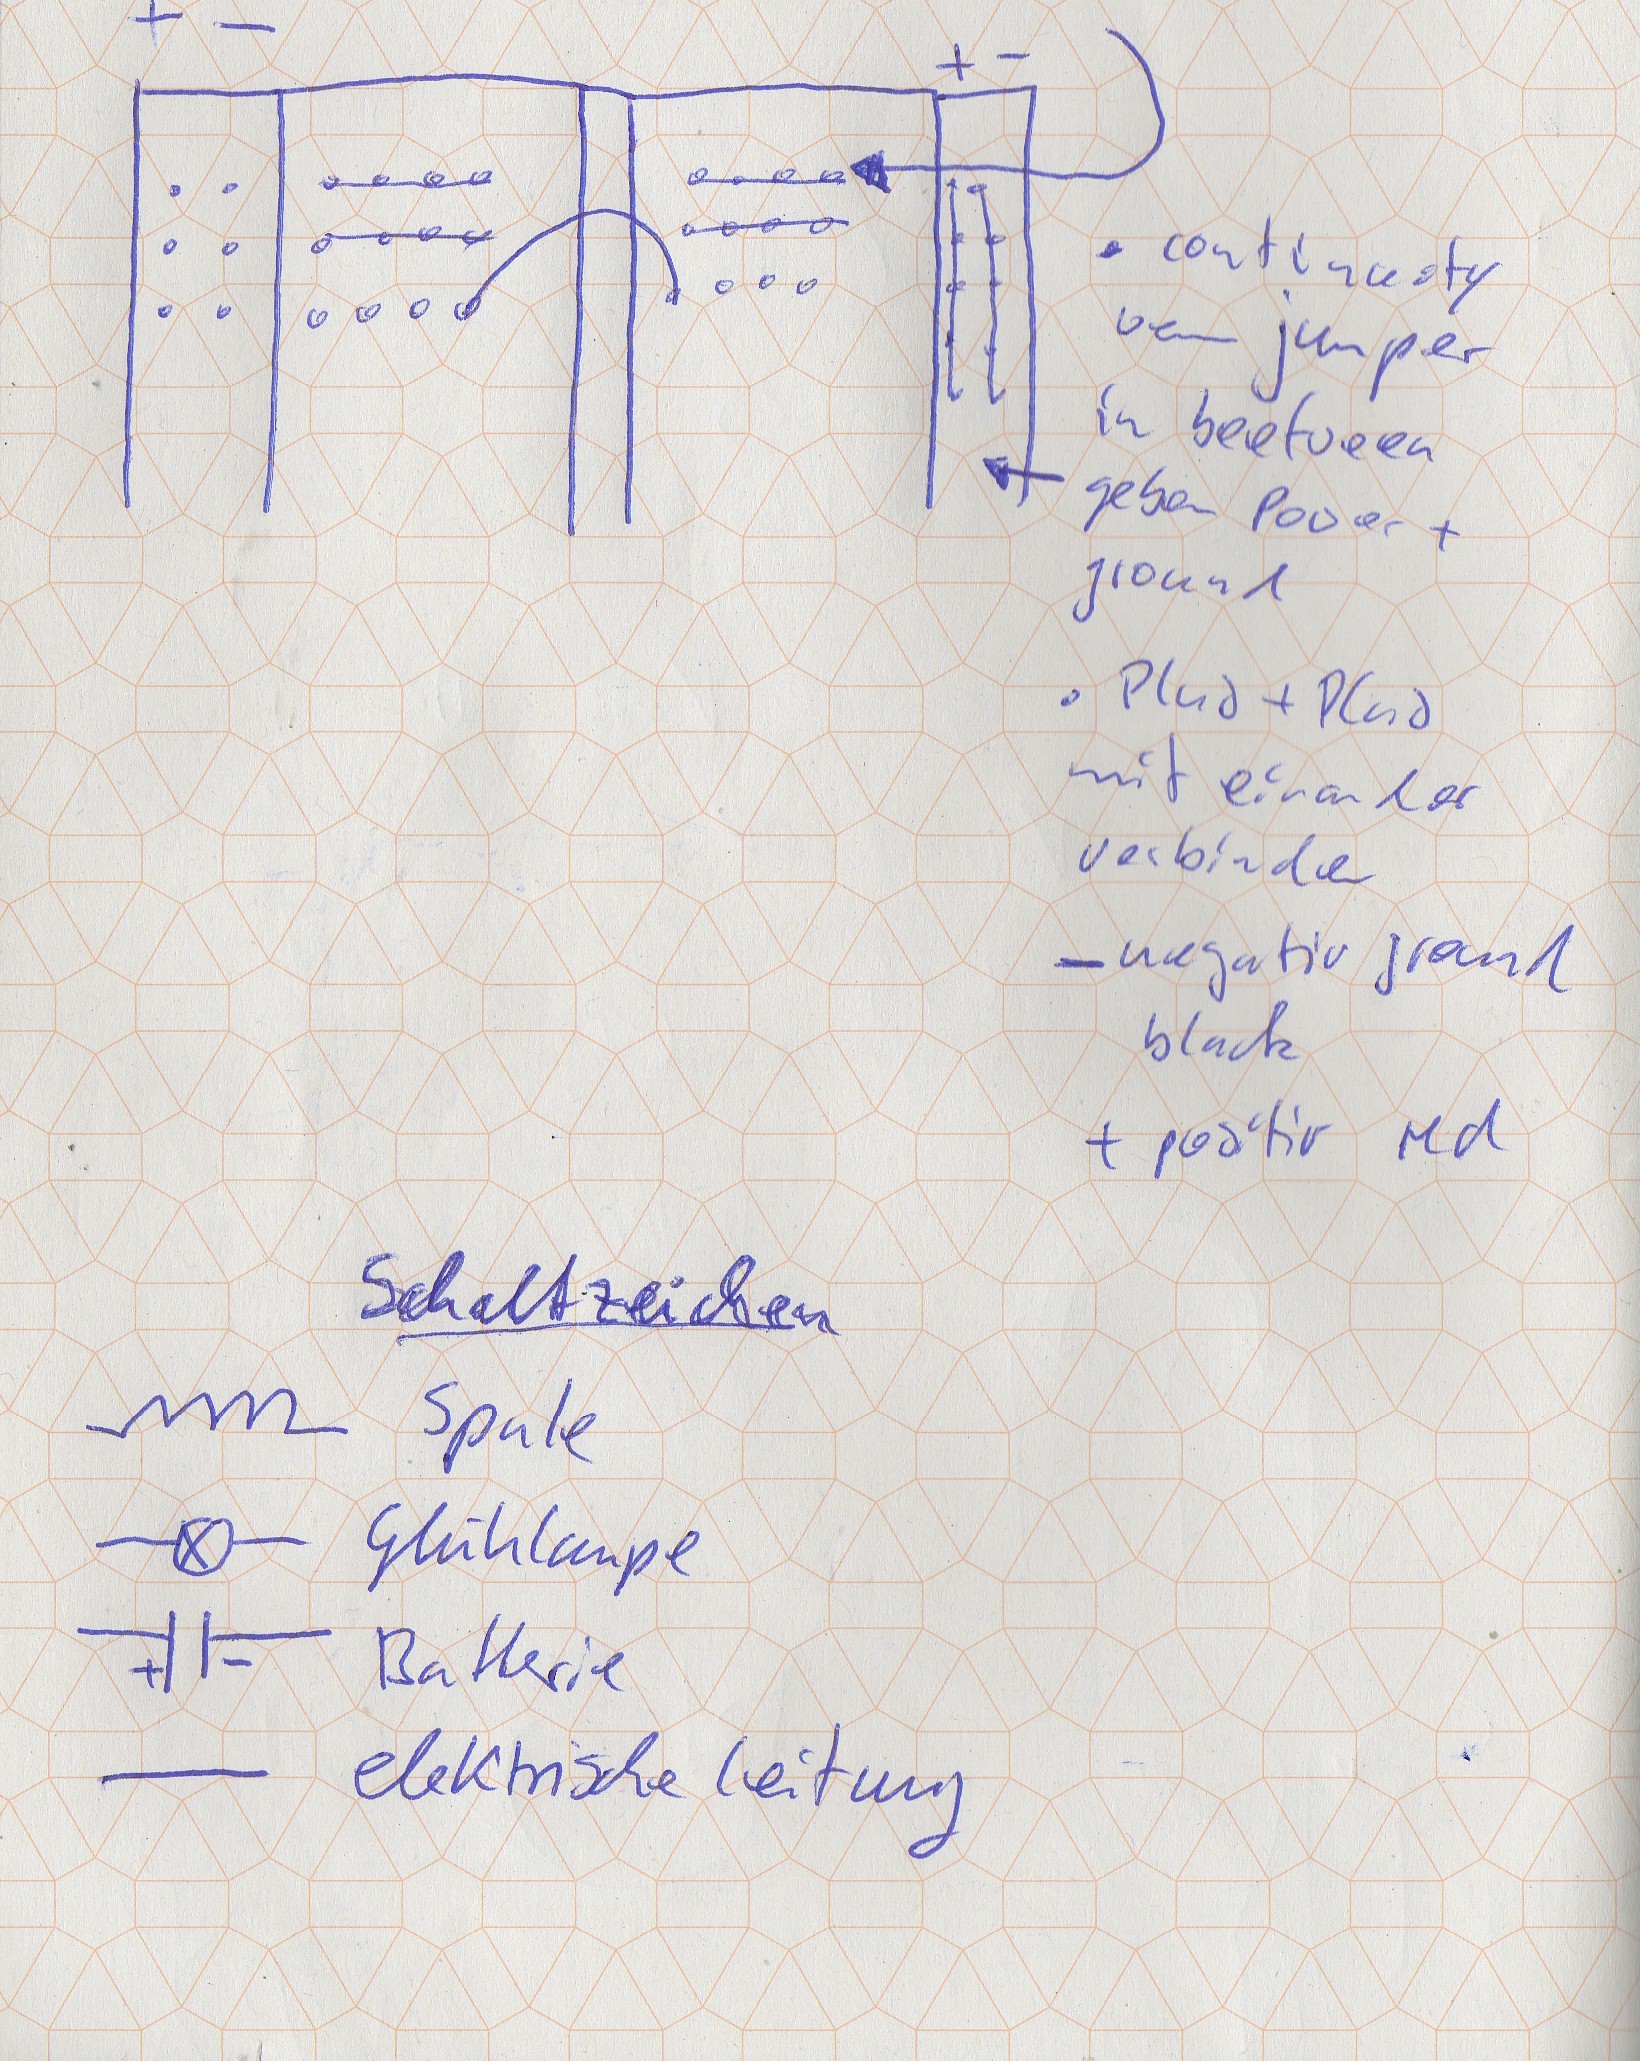 + −
+ −
• continuety
wenn jumper
in beetween
geben Power +
ground
• Plus + Plus
mit einander
verbinden
− negativ ground
black
+ positiv red
Schaltzeichen
Spule
Glühlampe
+ − Batterie
elektrische Leitung